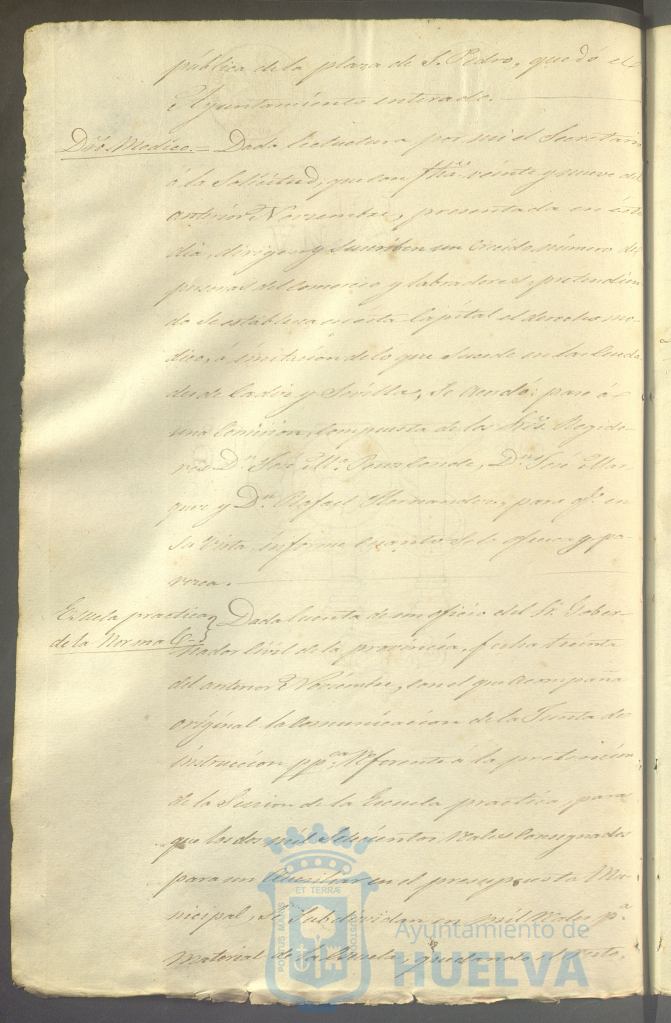 pública de la plaza de S. Pedro, quedó el
Ayuntamiento enterado.
Dro. Medico. = Dada lectura por mi el Secretario
á la Solicitud, que con fha. veinte y nueve del
anterior Noviembre, presentada en este
dia, dirigen y suscriben un crecido número de
personas del comercio y labradores, pretendien
do se establezca en esta Capital el derecho me
dico, á imitacion de lo que sucede en las Ciuda
des de Cadiz y Sevilla, Se acordó: pase á
una Comision, compuesta de los Sres. Regido
res Dn. José Ma. Dn. José Mar
quez y Dn. Rafael Hernandez, para qe. en
su vista, informe cuanto se le ofrezca y pa
rezca.
Escuela practica
de la Normal
Dada cuenta de un oficio del Sr. Gober
nador Civil de la provincia, fecha treinta
del anterior Noviembre, con el que acompaña
original la comunicacion de la Junta de
instruccion ppca. Referente á la pretension
de la Escuela practica, para
que los dos mil Reales consignados
para un Auxiliar en el presupuesto Mu
nicipal, Se Subdividan en mil Reales pa.
Material de la Escuela, quedando el resto,
ET TERRÆ
PORTUS MARIS
CUSTODIA
Ayuntamiento de
HUELVA